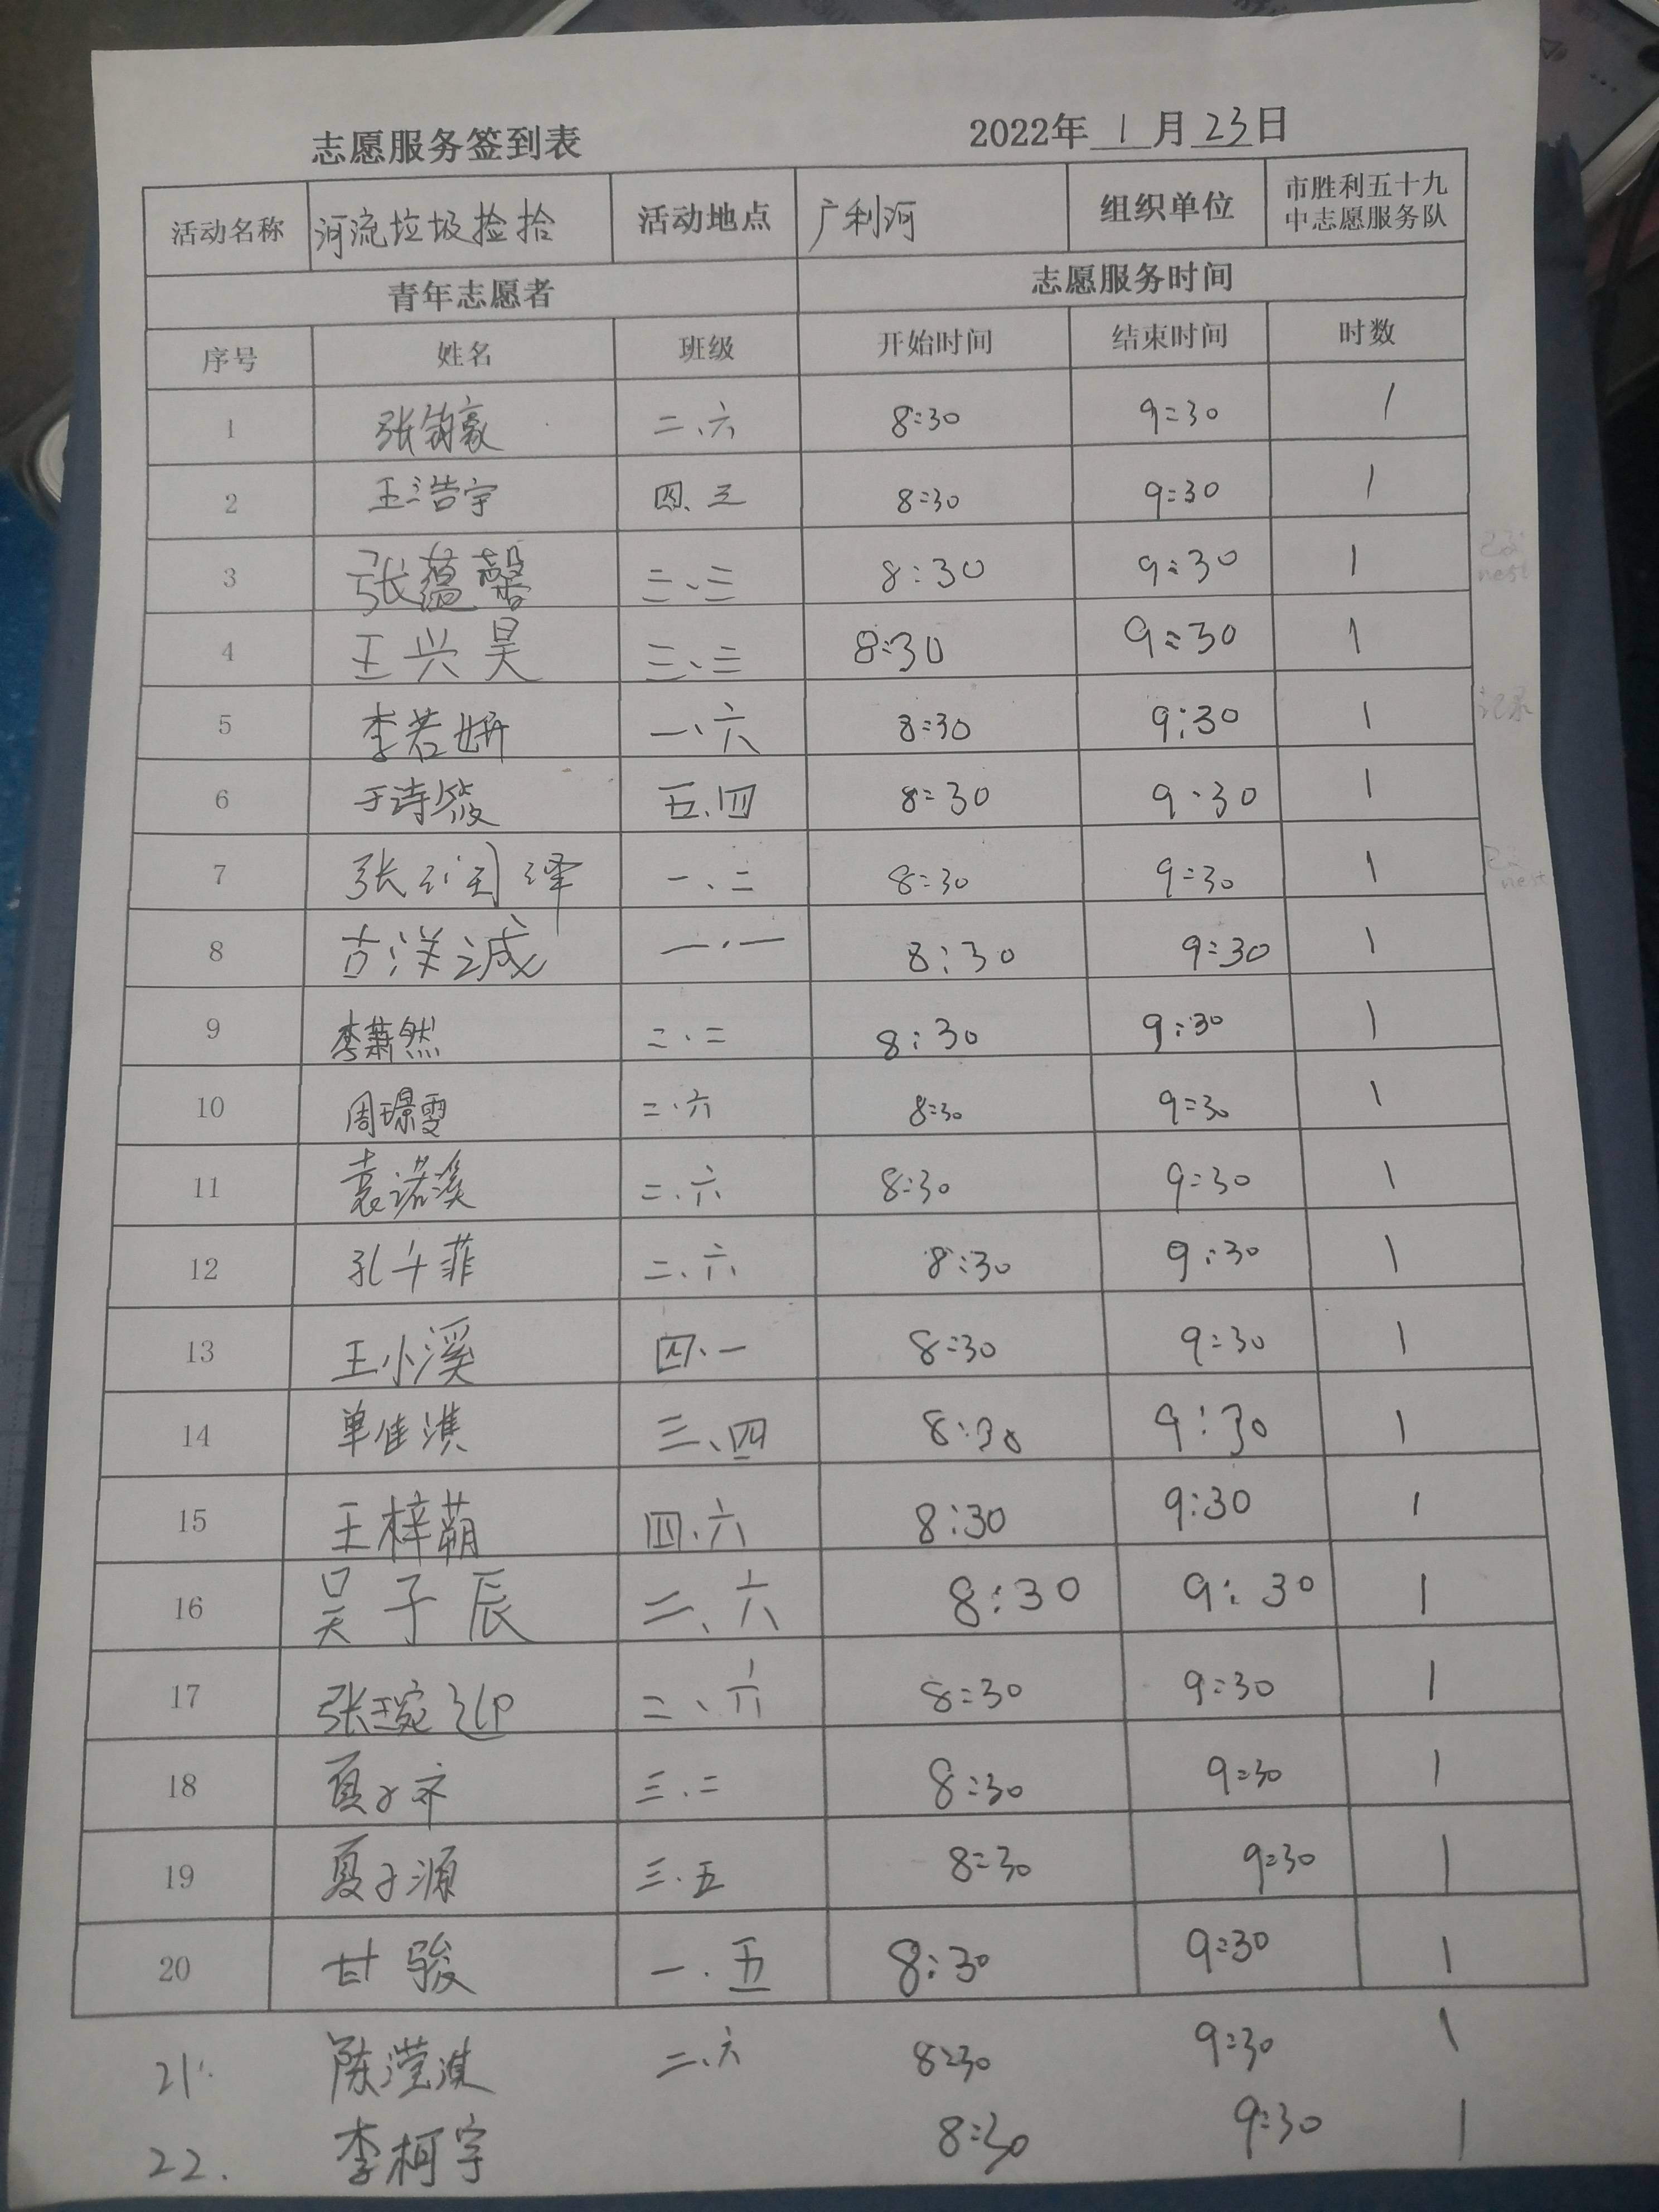 志愿服务签到表 2022年1月23日
活动名称 河流垃圾捡拾 活动地点 广利河 组织单位 市胜利五十九
中志愿服务队
青年志愿者 志愿服务时间
序号 姓名 班级 开始时间 结束时间 时数
1 张钧豪 二、六 8:30 9:30 1
2 王浩宇 四、三 8:30 9:30 1
3 张蕴馨 三、三 8:30 9:30 1
4 王兴昊 三、三 8:30 9:30 1
5 李若妍 一、六 8:30 9:30 1
6 于诗筱 五、四 8:30 9:30 1
7 张润泽 一、二 8:30 9:30 1
8 古洋诚 一·一 8:30 9:30 1
9 李萧然 二·二 8:30 9:30 1
10 周璟雯 二·六 8:30 9:30 1
11 袁诺溪 二、六 8:30 9:30 1
12 孔千菲 二、六 8:30 9:30 1
13 王小溪 四、一 8:30 9:30 1
14 单佳淇 三、四 8:30 9:30 1
15 王梓萌 四、六 8:30 9:30 1
16 吴子辰 二、六 8:30 9:30 1
17 张琬迎 二、六 8:30 9:30 1
18 夏子齐 三·二 8:30 9:30 1
19 夏子源 三·五 8:30 9:30 1
20 甘骏 一·五 8:30 9:30 1
21. 陈滢淇 二、六 8:30 9:30 1
22. 李柯宇 8:30 9:30 1